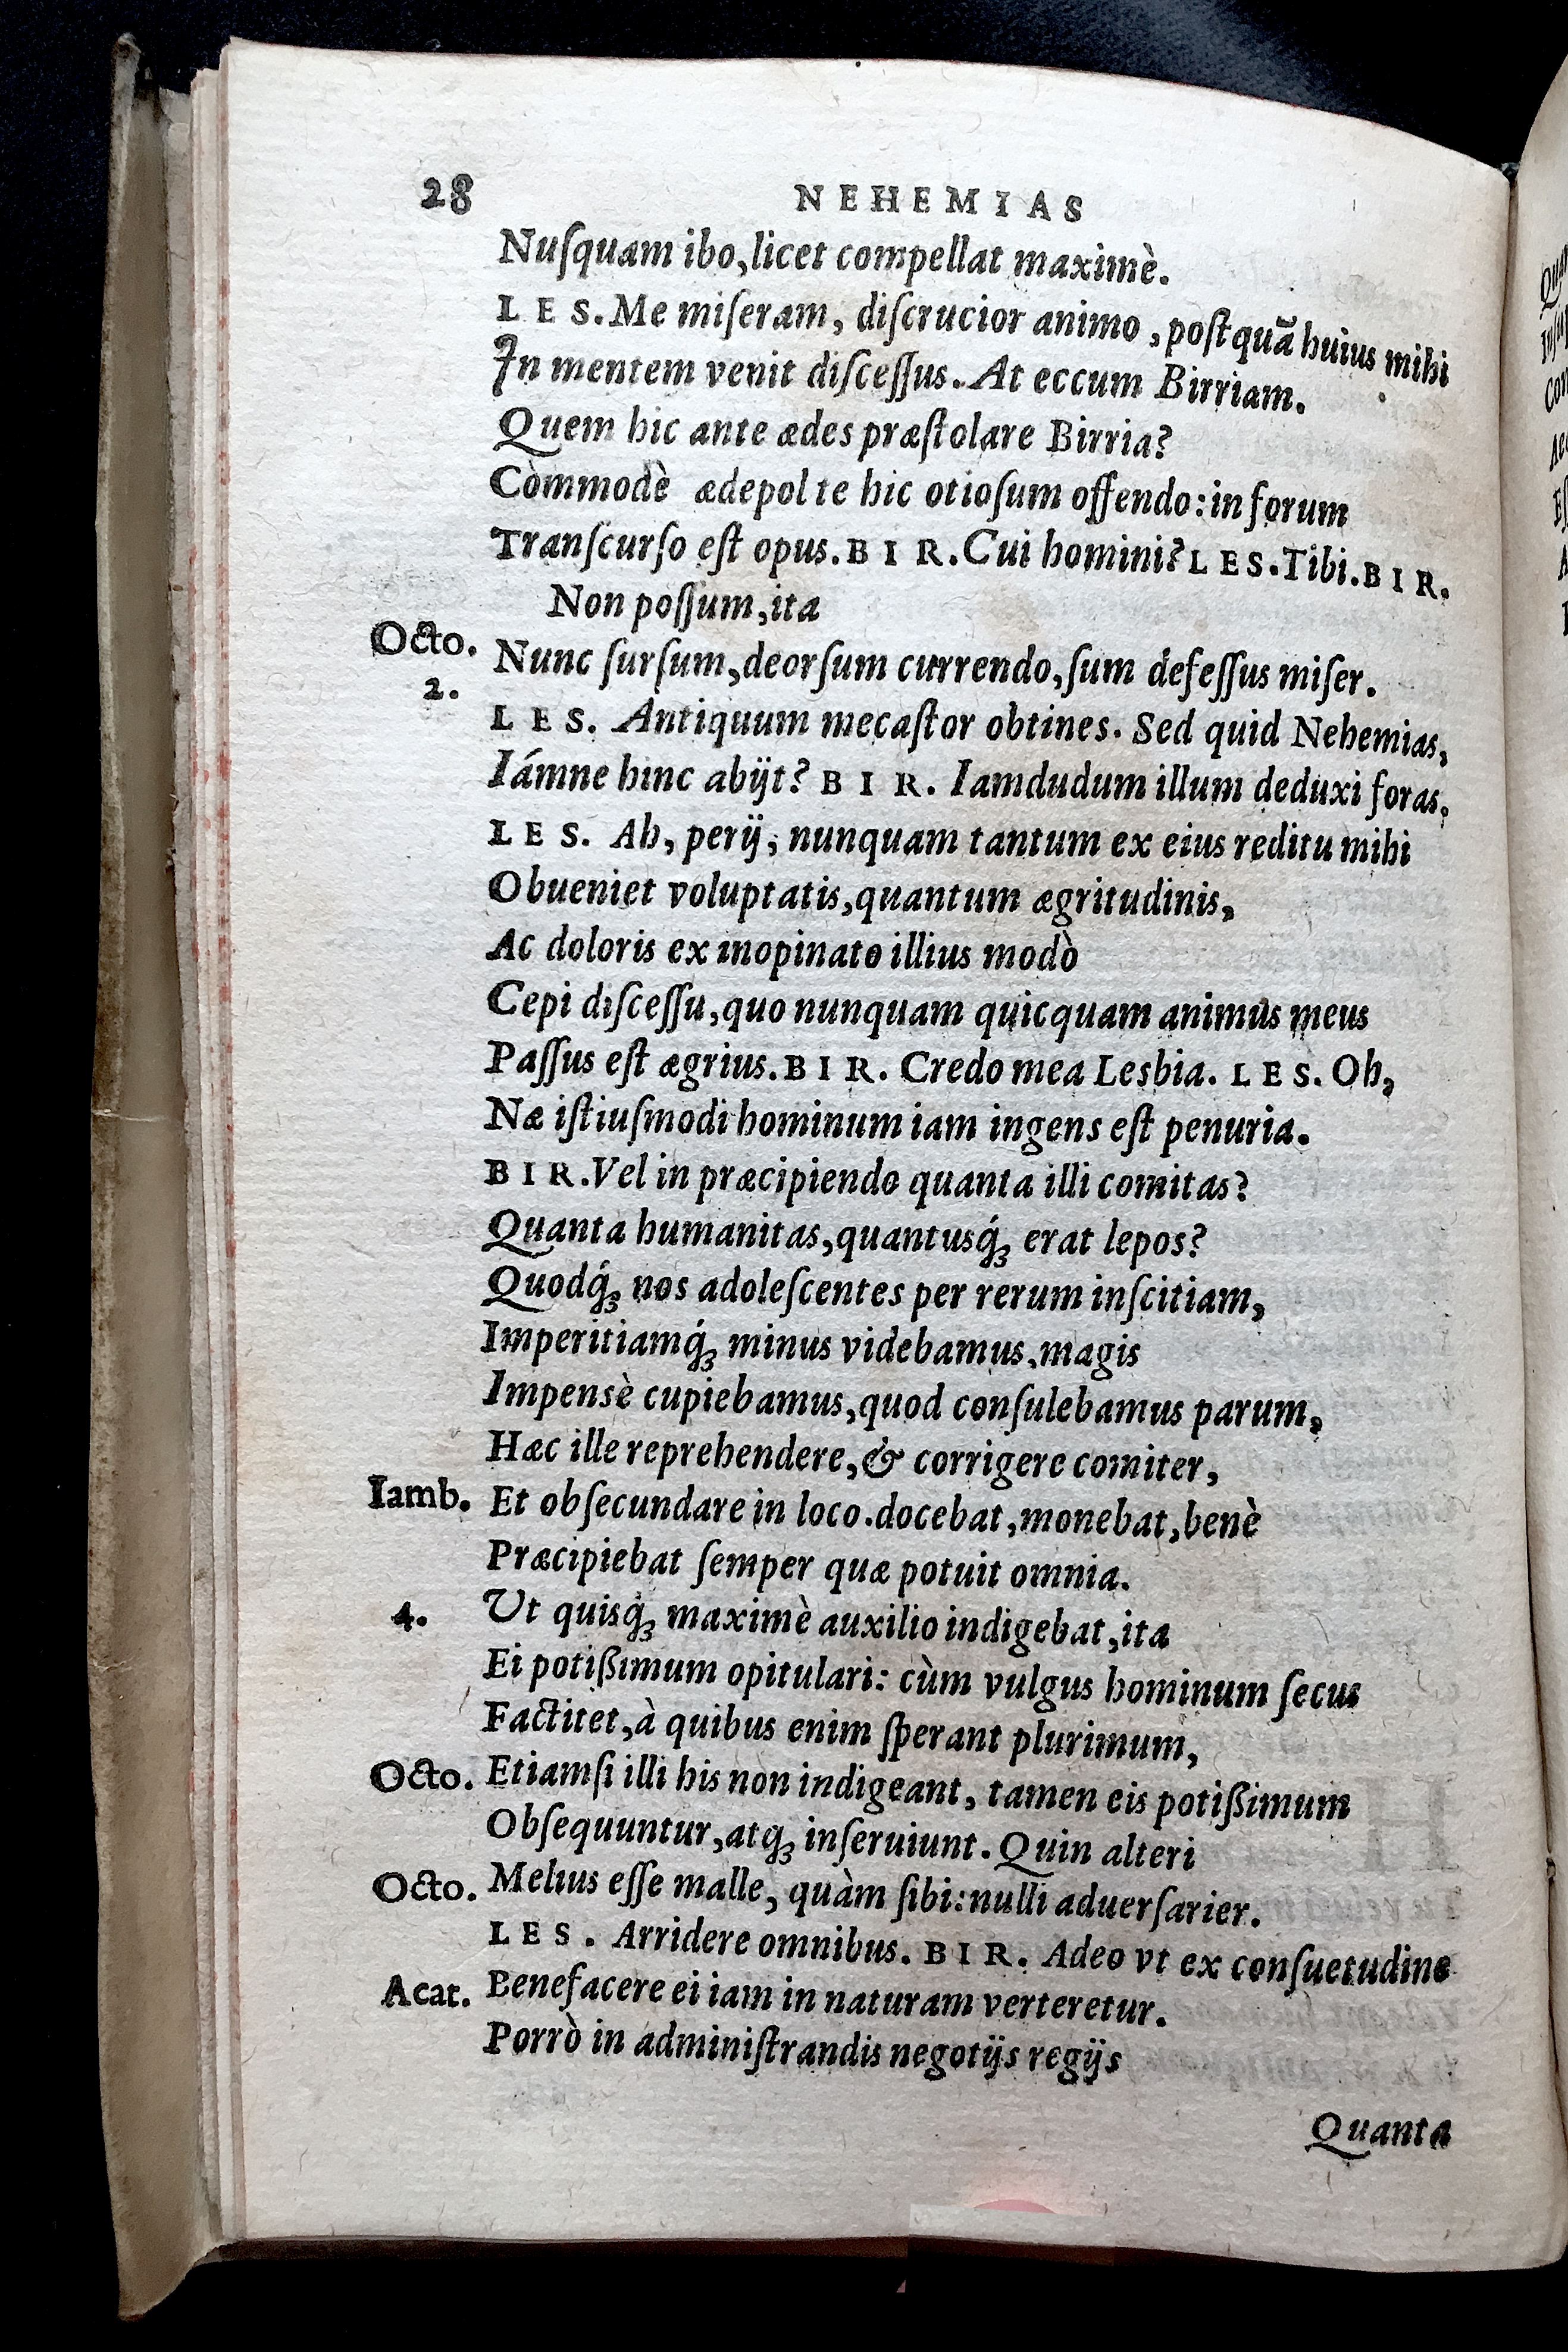 28 NEHEMIAS
Nuſquam ibo, licet compellat maximè.
LES. Me miſeram, diſcrucior animo, poſtquã huius mihi
In mentem venit diſceſſus. At eccum Birriam.
Quem hic ante ædes præſtolare Birria?
Còmmodè ædepol te hic otioſum offendo: in forum
Tranſcurſo eſt opus. BIR. Cui homini? LES. Tibi. BIR.
Non poſſum, ita
Octo. Nunc ſurſum, deorſum currendo, ſum defeſſus miſer.
2.
LES. Antiquum mecaſtor obtines. Sed quid Nehemias,
Iámne hinc abijt? BIR. Iamdudum illum deduxi foras.
LES. Ah, perij, nunquam tantum ex eius reditu mihi
Obueniet voluptatis, quantum ægritudinis,
Ac doloris ex inopinato illius modò
Cepi diſceſſu, quo nunquam quicquam animus meus
Paſſus eſt ægrius. BIR. Credo mea Lesbia. LES. Oh,
Næ iſtiuſmodi hominum iam ingens eſt penuria.
BIR. Vel in præcipiendo quanta illi comitas?
Quanta humanitas, quantusq́ꝫ erat lepos?
Quodq́ꝫ nos adoleſcentes per rerum inſcitiam,
Imperitiamq́ꝫ minus videbamus, magis
Impensè cupiebamus, quod conſulebamus parum,
Hæc ille reprehendere, & corrigere comiter,
Iamb. Et obſecundare in loco. docebat, monebat, benè
Præcipiebat ſemper quæ potuit omnia.
4. Ut quisq́ꝫ maximè auxilio indigebat, ita
Ei potißimum opitulari: cùm vulgus hominum ſecus
Factitet, à quibus enim ſperant plurimum,
Octo. Etiamſi illi his non indigeant, tamen eis potißimum
Obſequuntur, atqꝫ inſeruiunt. Quin alteri
Octo. Melius eſſe malle, quàm ſibi: nulli aduerſarier.
LES. Arridere omnibus. BIR. Adeo vt ex conſuetudine
Acat. Benefacere ei iam in naturam verteretur.
Porrò in adminiſtrandis negotijs regijs
Quanta